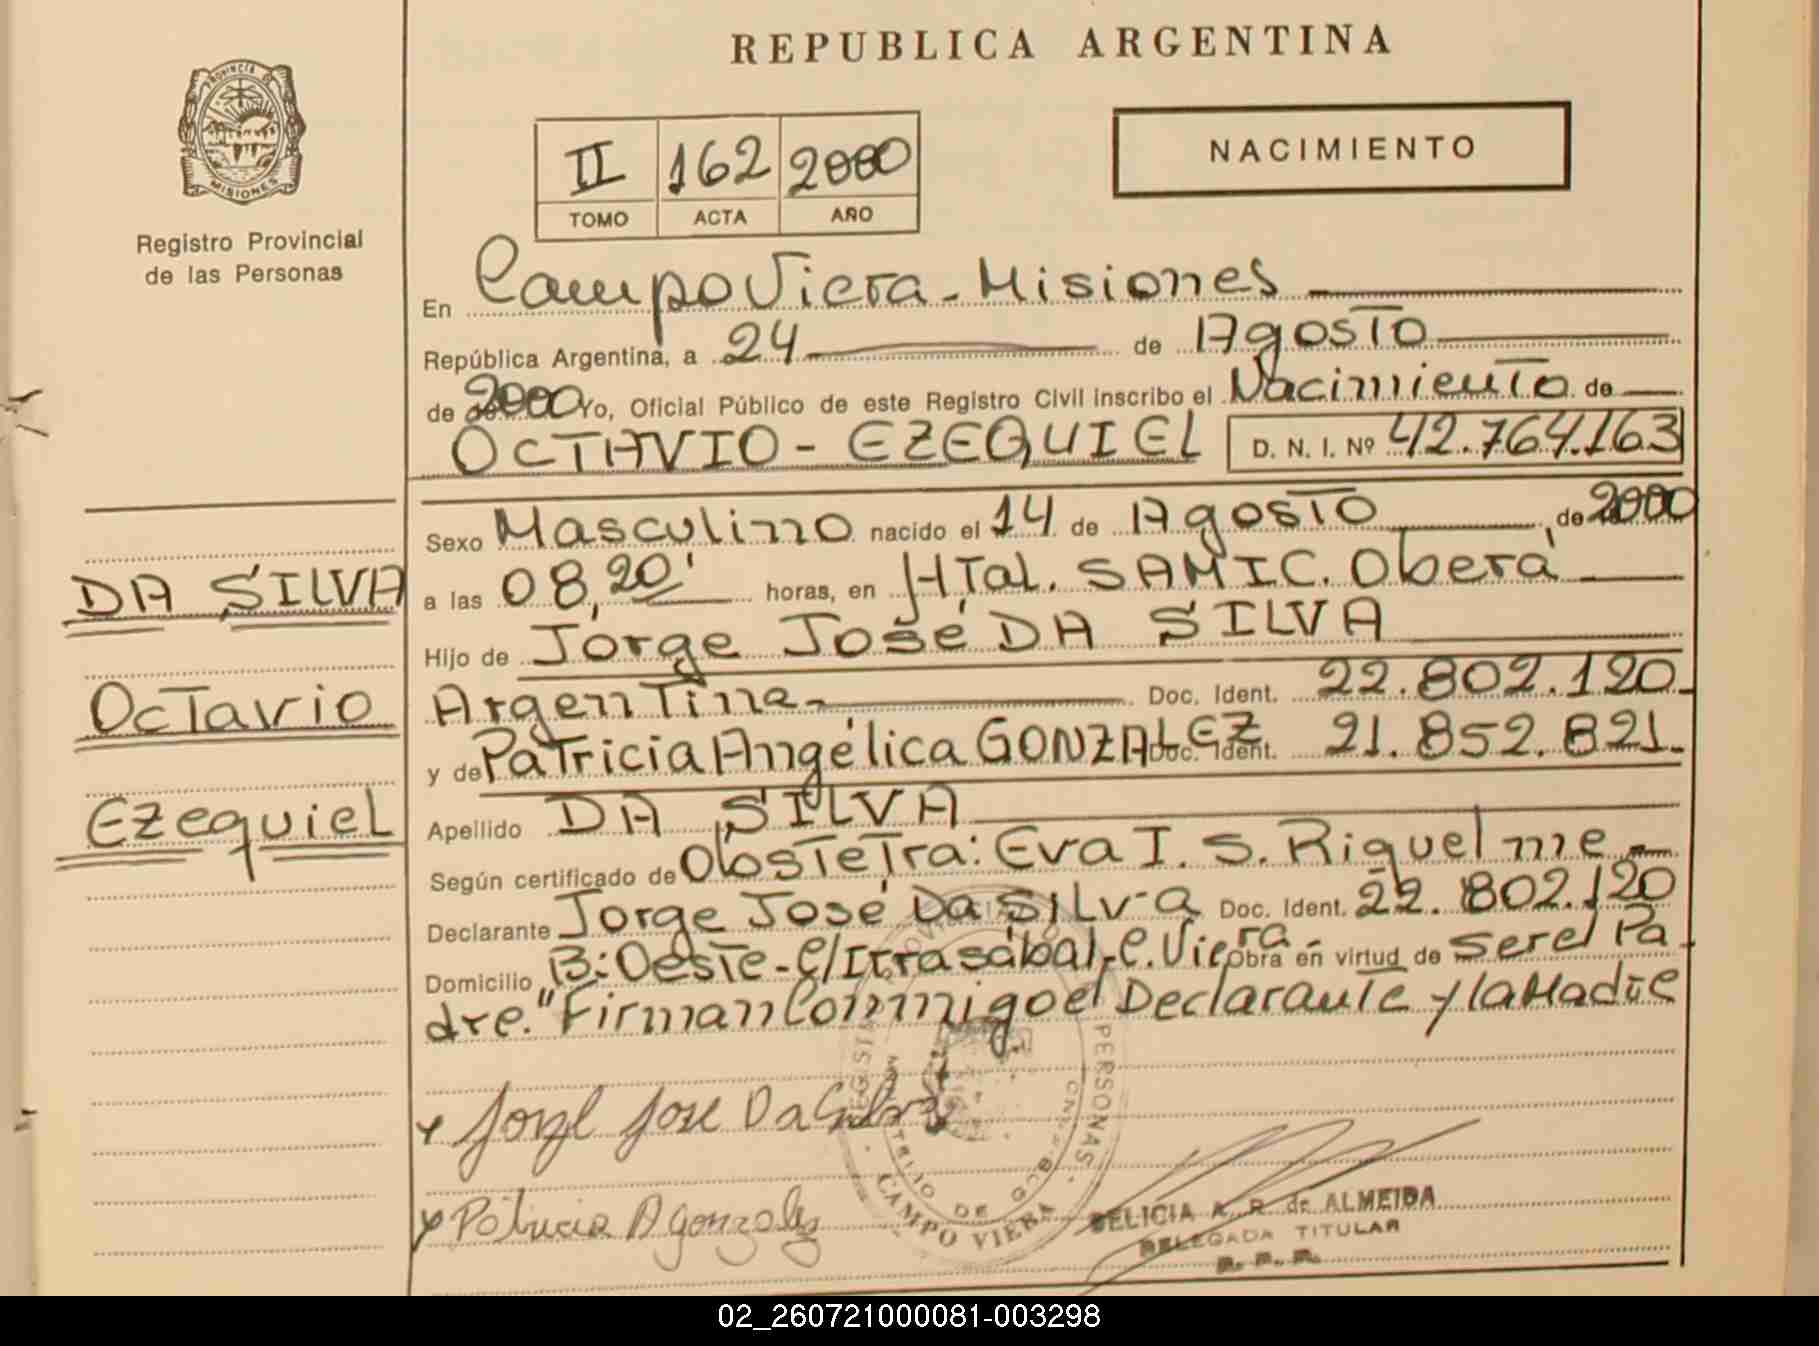 REPUBLICA ARGENTINA
PROVINCIA DE
MISIONES
Registro Provincial
de las Personas
II 162 2000
TOMO ACTA AÑO
NACIMIENTO
En Campo Viera - Misiones
República Argentina, a 24 de Agosto
de 2000 Yo, Oficial Público de este Registro Civil inscribo el Nacimiento de
OCTAVIO - EZEQUIEL D. N. I. Nº 42.764.163
Sexo Masculino nacido el 14 de Agosto de 2000
a las 08,20' horas, en HTal. SAMIC. Oberá
Hijo de Jorge José DA SILVA
Argentina - Doc. Ident. 22.802.120
y de Patricia Angélica GONZALEZ Doc. Ident. 21.852.821.
Apellido DA SILVA
Según certificado de Obstetra: Eva I. S. Riquelme -
Declarante Jorge José Da Silva Doc. Ident. 22.802.120
Domicilio B: Oeste - C/ Irrasábal - C. Viera - Obra en virtud de ser el Pa
dre." Firman Conmigo el Declarante y la Madre
DA SILVA
Octavio
Ezequiel
Jorge Jose Da Silva
Patricia A gonzalez
PERSONAS
CAMPO VIERA
DELICIA A. R. de ALMEIDA
DELEGADA TITULAR
R. P. P.
02_260721000081-003298